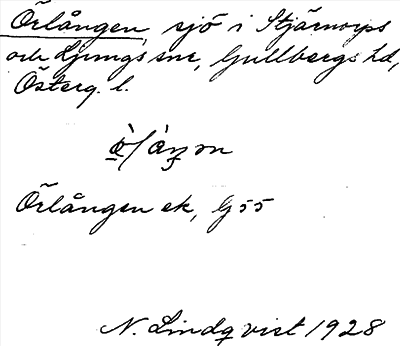 Örlången, sjö i Stjärnorps
och Ljungs snr, Gullbergs hd,
Österg. l.
Örlången ek, G 55
N. Lindqvist 1928